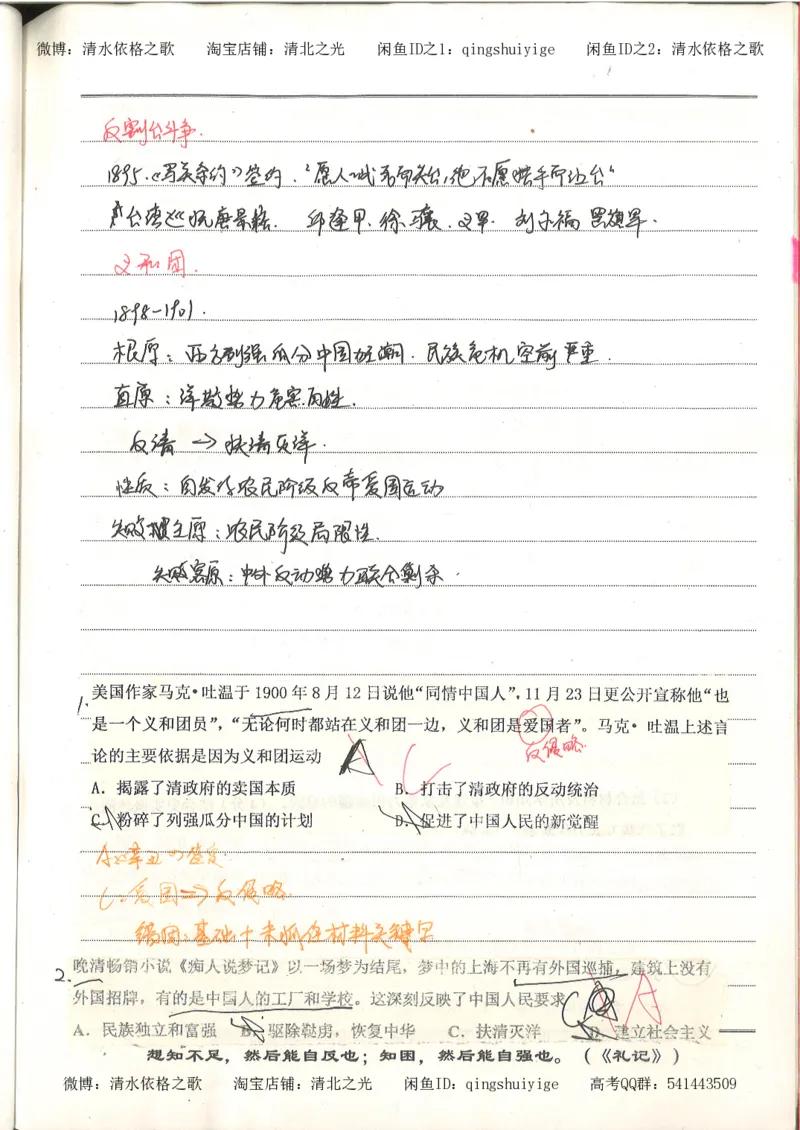 微博：清水依格之歌 淘宝店铺：清北之光 闲鱼ID之1：qingshuiyige 闲鱼ID之2：清水依格之歌
反割台斗争.
1895.《马关条约》签约."愿人人战死而失台,绝不愿拱手而让台"
台湾 邱逢甲.徐骧.义军.刘永福 黑旗军.
义和团.
1898-1901.
根原：西方列强瓜分中国狂潮.民族危机空前严重.
直原：洋教势力危害百姓.
反清→扶清灭洋.
性质：自发得农民阶级反帝爱国运动
失败根主原：农民阶级局限性.
失败客原：中外反动势力联合剿杀.
1. 美国作家马克·吐温于 1900 年 8 月 12 日说他“同情中国人”，11 月 23 日更公开宣称他“也
是一个义和团员”，“无论何时都站在义和团一边，义和团是爱国者”。马克·吐温上述言
反侵略.
论的主要依据是因为义和团运动 A C
A．揭露了清政府的卖国本质 B．打击了清政府的反动统治
C．粉碎了列强瓜分中国的计划 D．促进了中国人民的新觉醒
A《辛丑》签定
C.爱国→反侵略
错因:基础+未抓住材料关键字
2. 晚清畅销小说《痴人说梦记》以一场梦为结尾，梦中的上海不再有外国巡捕，建筑上没有
外国招牌，有的是中国人的工厂和学校。这深刻反映了中国人民要求 A
A．民族独立和富强 B．驱除鞑虏，恢复中华 C．扶清灭洋 D．建立社会主义
想知不足，然后能自反也；知困，然后能自强也。（《礼记》）
微博：清水依格之歌 淘宝店铺：清北之光 闲鱼ID：qingshuiyige 高考QQ群：541443509